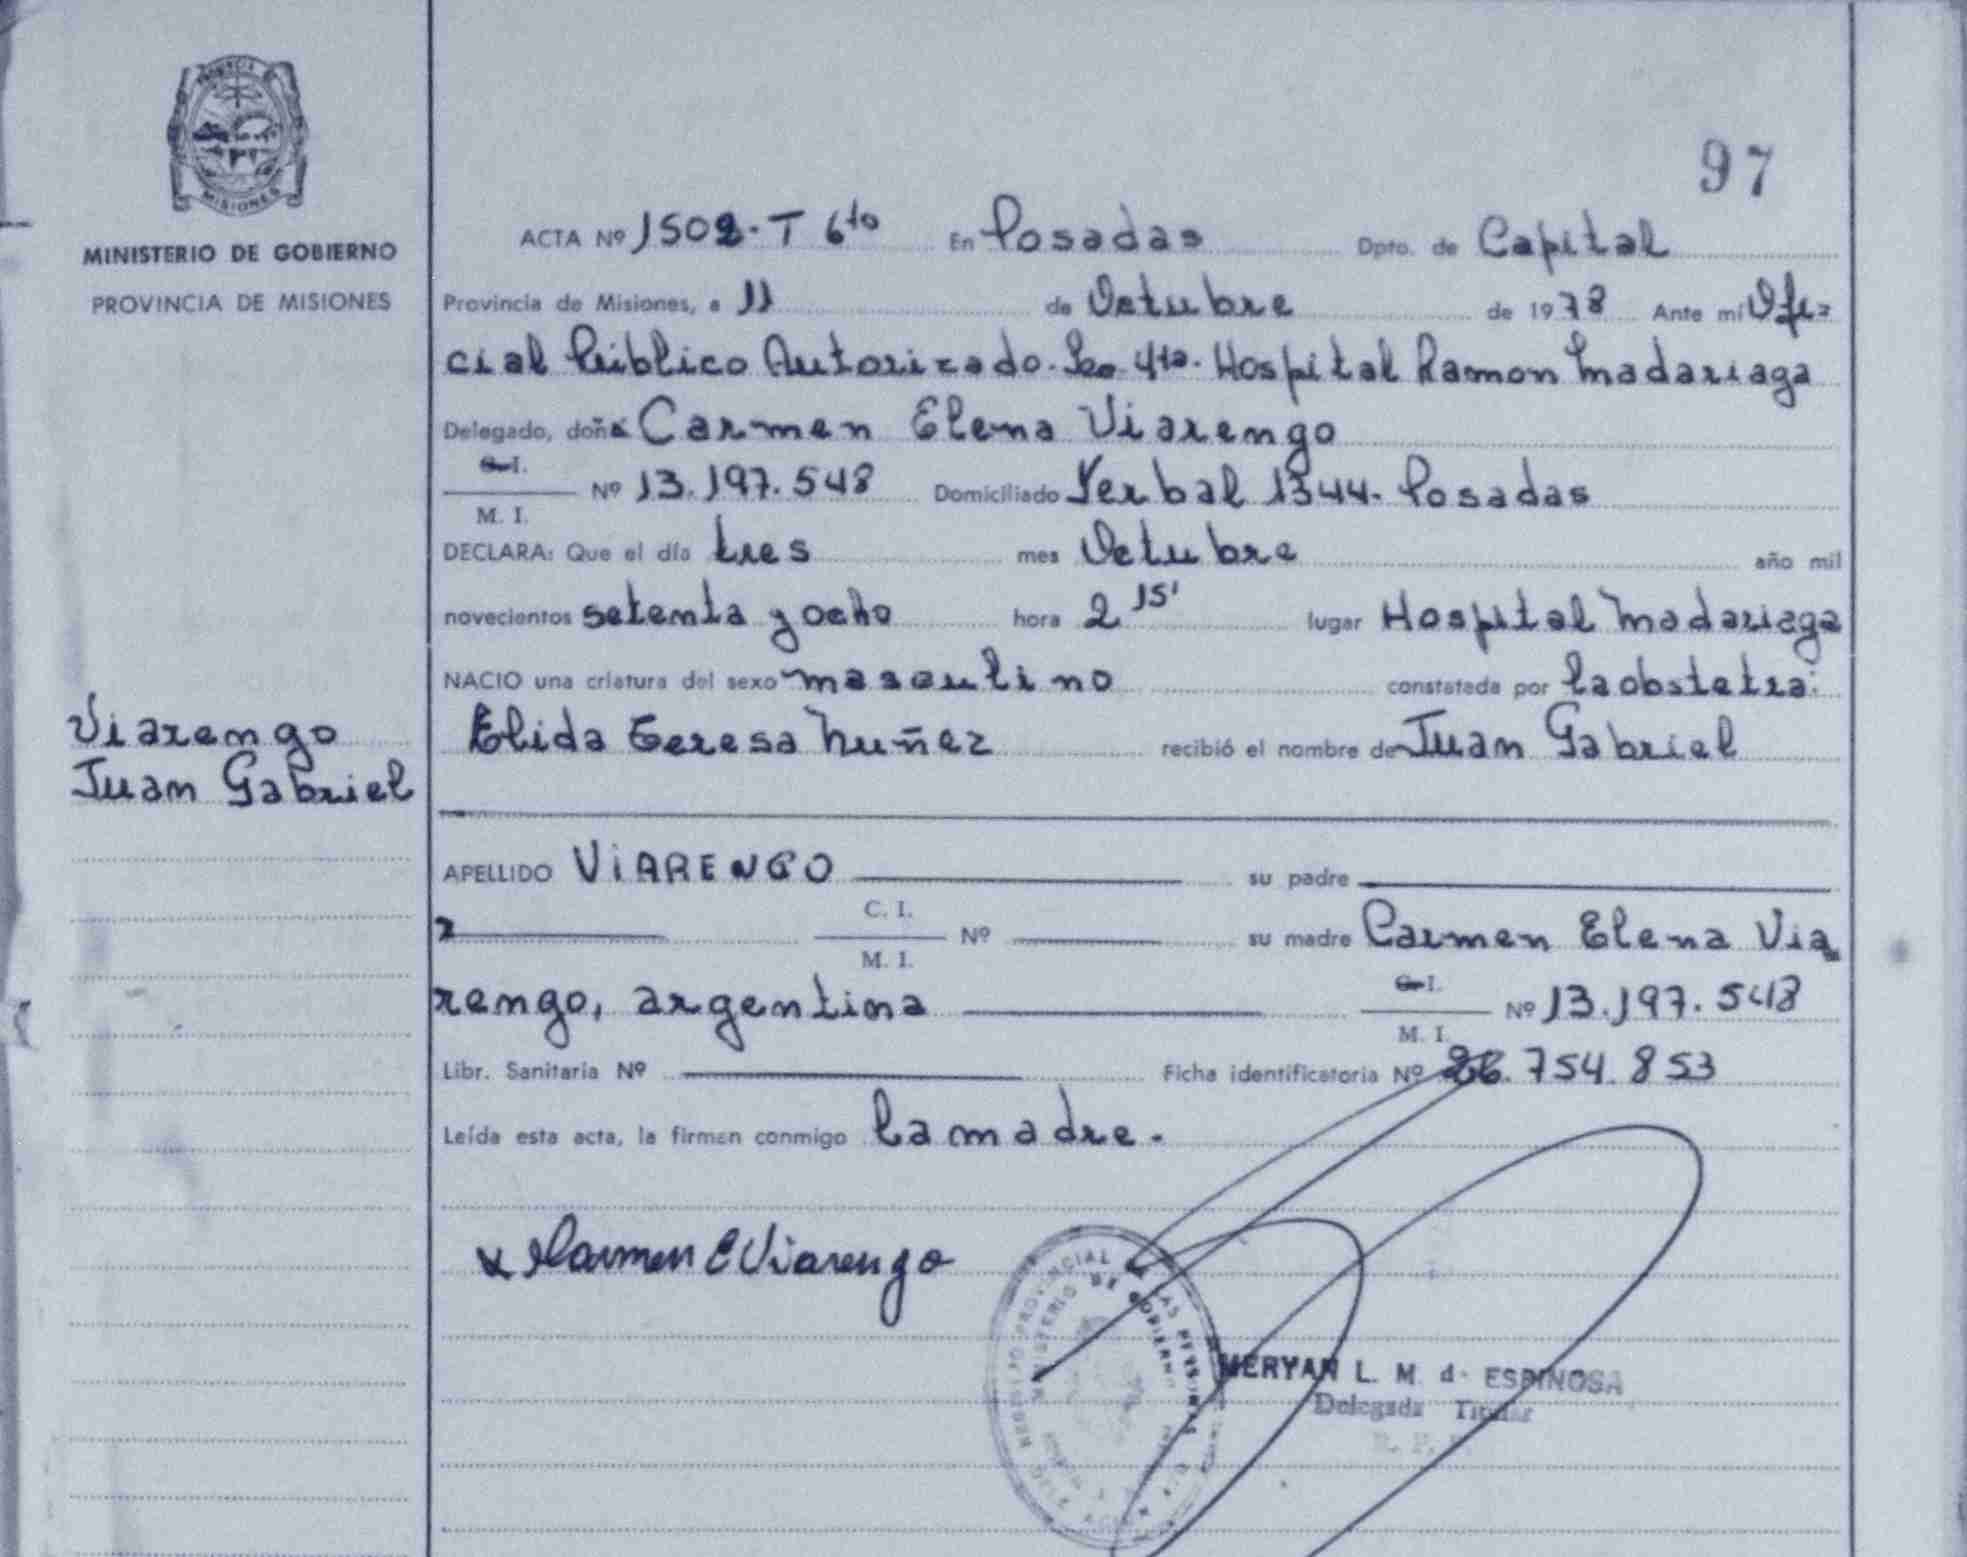 PROVINCIA DE
MISIONES
MINISTERIO DE GOBIERNO
PROVINCIA DE MISIONES
97
ACTA Nº 1502. T 6to En Posadas Dpto. de Capital
Provincia de Misiones, a 11 de Octubre de 1978 Ante mí Ofi=
cial Público Autorizado. Sec 4ta. Hospital Ramon Madariaga
Delegado, doña Carmen Elena Viarengo
C.I.
Nº 13.197.548 Domiciliado Yerbal 1344. Posadas
M. I.
DECLARA: Que el día tres mes Octubre año mil
novecientos setenta y ocho hora 2 15' lugar Hospital Madariaga
NACIO una criatura del sexo masculino constatada por la obstetra:
Elida Teresa Nuñez recibió el nombre de Juan Gabriel
Viarengo
Juan Gabriel
APELLIDO VIARENGO su padre
C. I.
Nº su madre Carmen Elena Via
M. I.
rengo, argentina
C.I.
Nº 13.197.548
M. I.
Libr. Sanitaria Nº Ficha identificatoria Nº 26.754.853
Leída esta acta, la firman conmigo la madre.
x Carmen E Viarengo
PROVINCIAL DE LAS PERSONAS
MINISTERIO DE GOBIERNO
MERYAN L. M. d. ESPINOSA
Delegada Titular